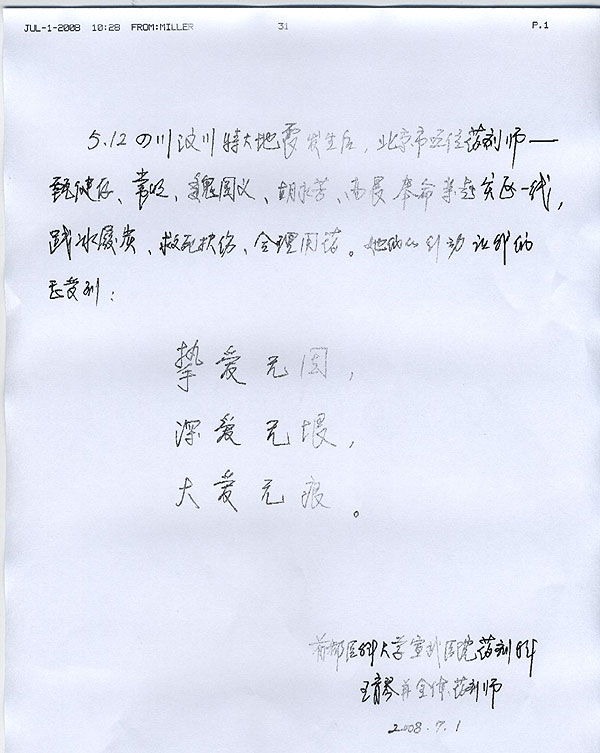 JUL-1-2008 10:28 FROM:MILLER 31 P.1
5.12四川汶川特大地震发生后,北京市五位药剂师——
甄健存、常明、魏国义、胡永芳、高晨 奉命奔赴灾区一线,
践冰履炭、救死扶伤、合理用药。她们的行动让我们
感受到:
挚爱无固,
深爱无垠,
大爱无痕。
首都医科大学宣武医院药剂科
王育琴并全体药剂师
2008.7.1